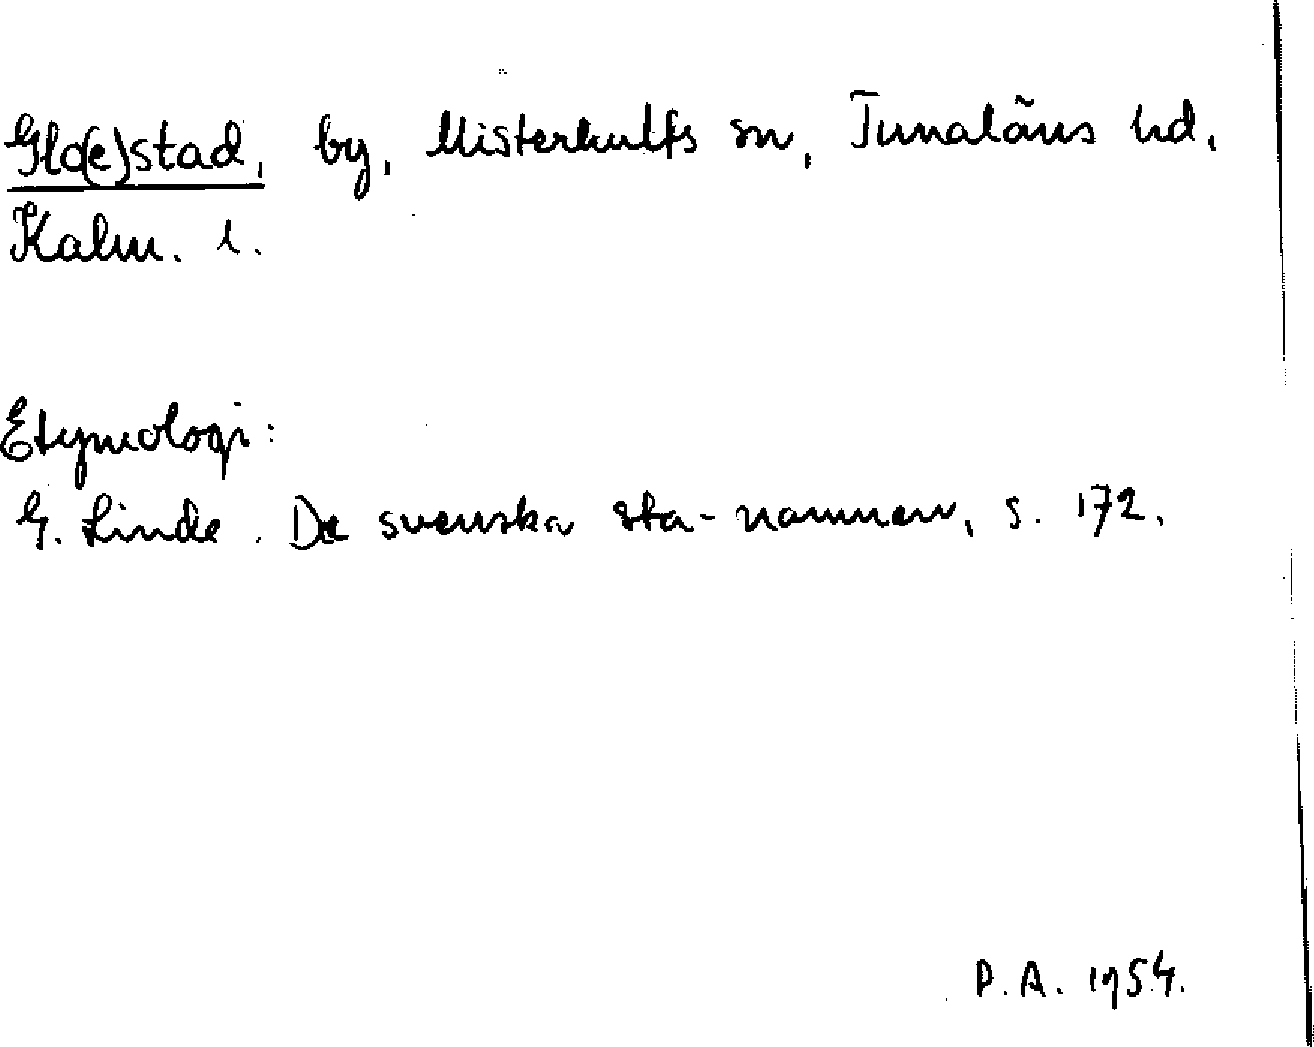 Glo(e)stad, by, Misterhults sn, Tunaläns hd,
Kalm. l.
Etymologi:
G. Linde. De svenska sta-namnen, s. 172.
P.A. 1954.